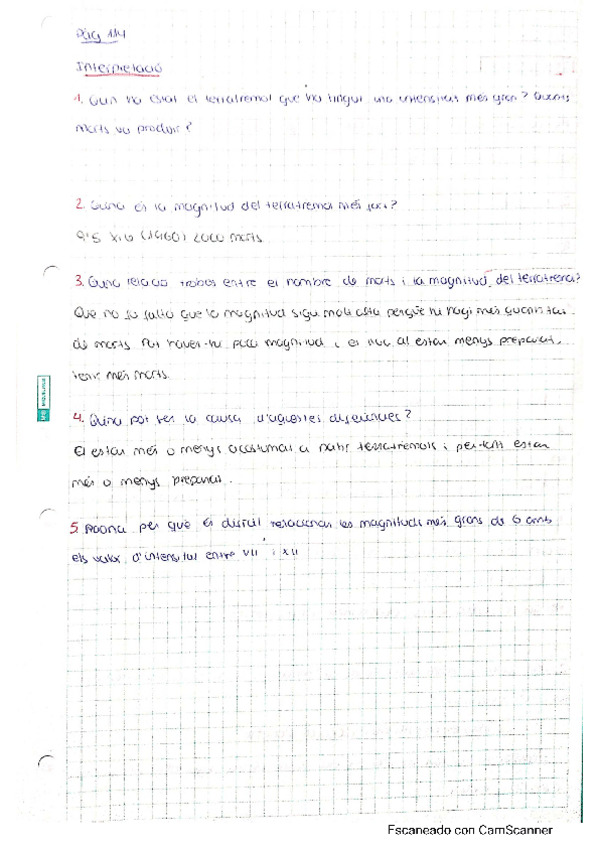 Pàg 114
Interpretació
1. Quin ha estat el terratrèmol que ha tingut una intensitat més gran? Quants
morts va produir?
2. Quina és la magnitud del terratrèmol més fort?
9'5 (1960) 2000 morts
3. Quina relació trobes entre el nombre de morts i la magnitud del terratrèmol?
Que no fa falta que la magnitud sigui molt alta perquè hi hagi més quantitat
de morts. Pot haver-hi poca magnitud i el lloc al estar menys preparat,
tenir més morts.
4. Quina pot ser la causa d'aquestes diferències?
El estar més o menys acostumat a patir terratrèmols i per tant estar
més o menys preparat.
5. Raona per què és difícil relacionar les magnituds més grans de 6 amb
els valor d'intensitat entre VII i XII
Escaneado con CamScanner